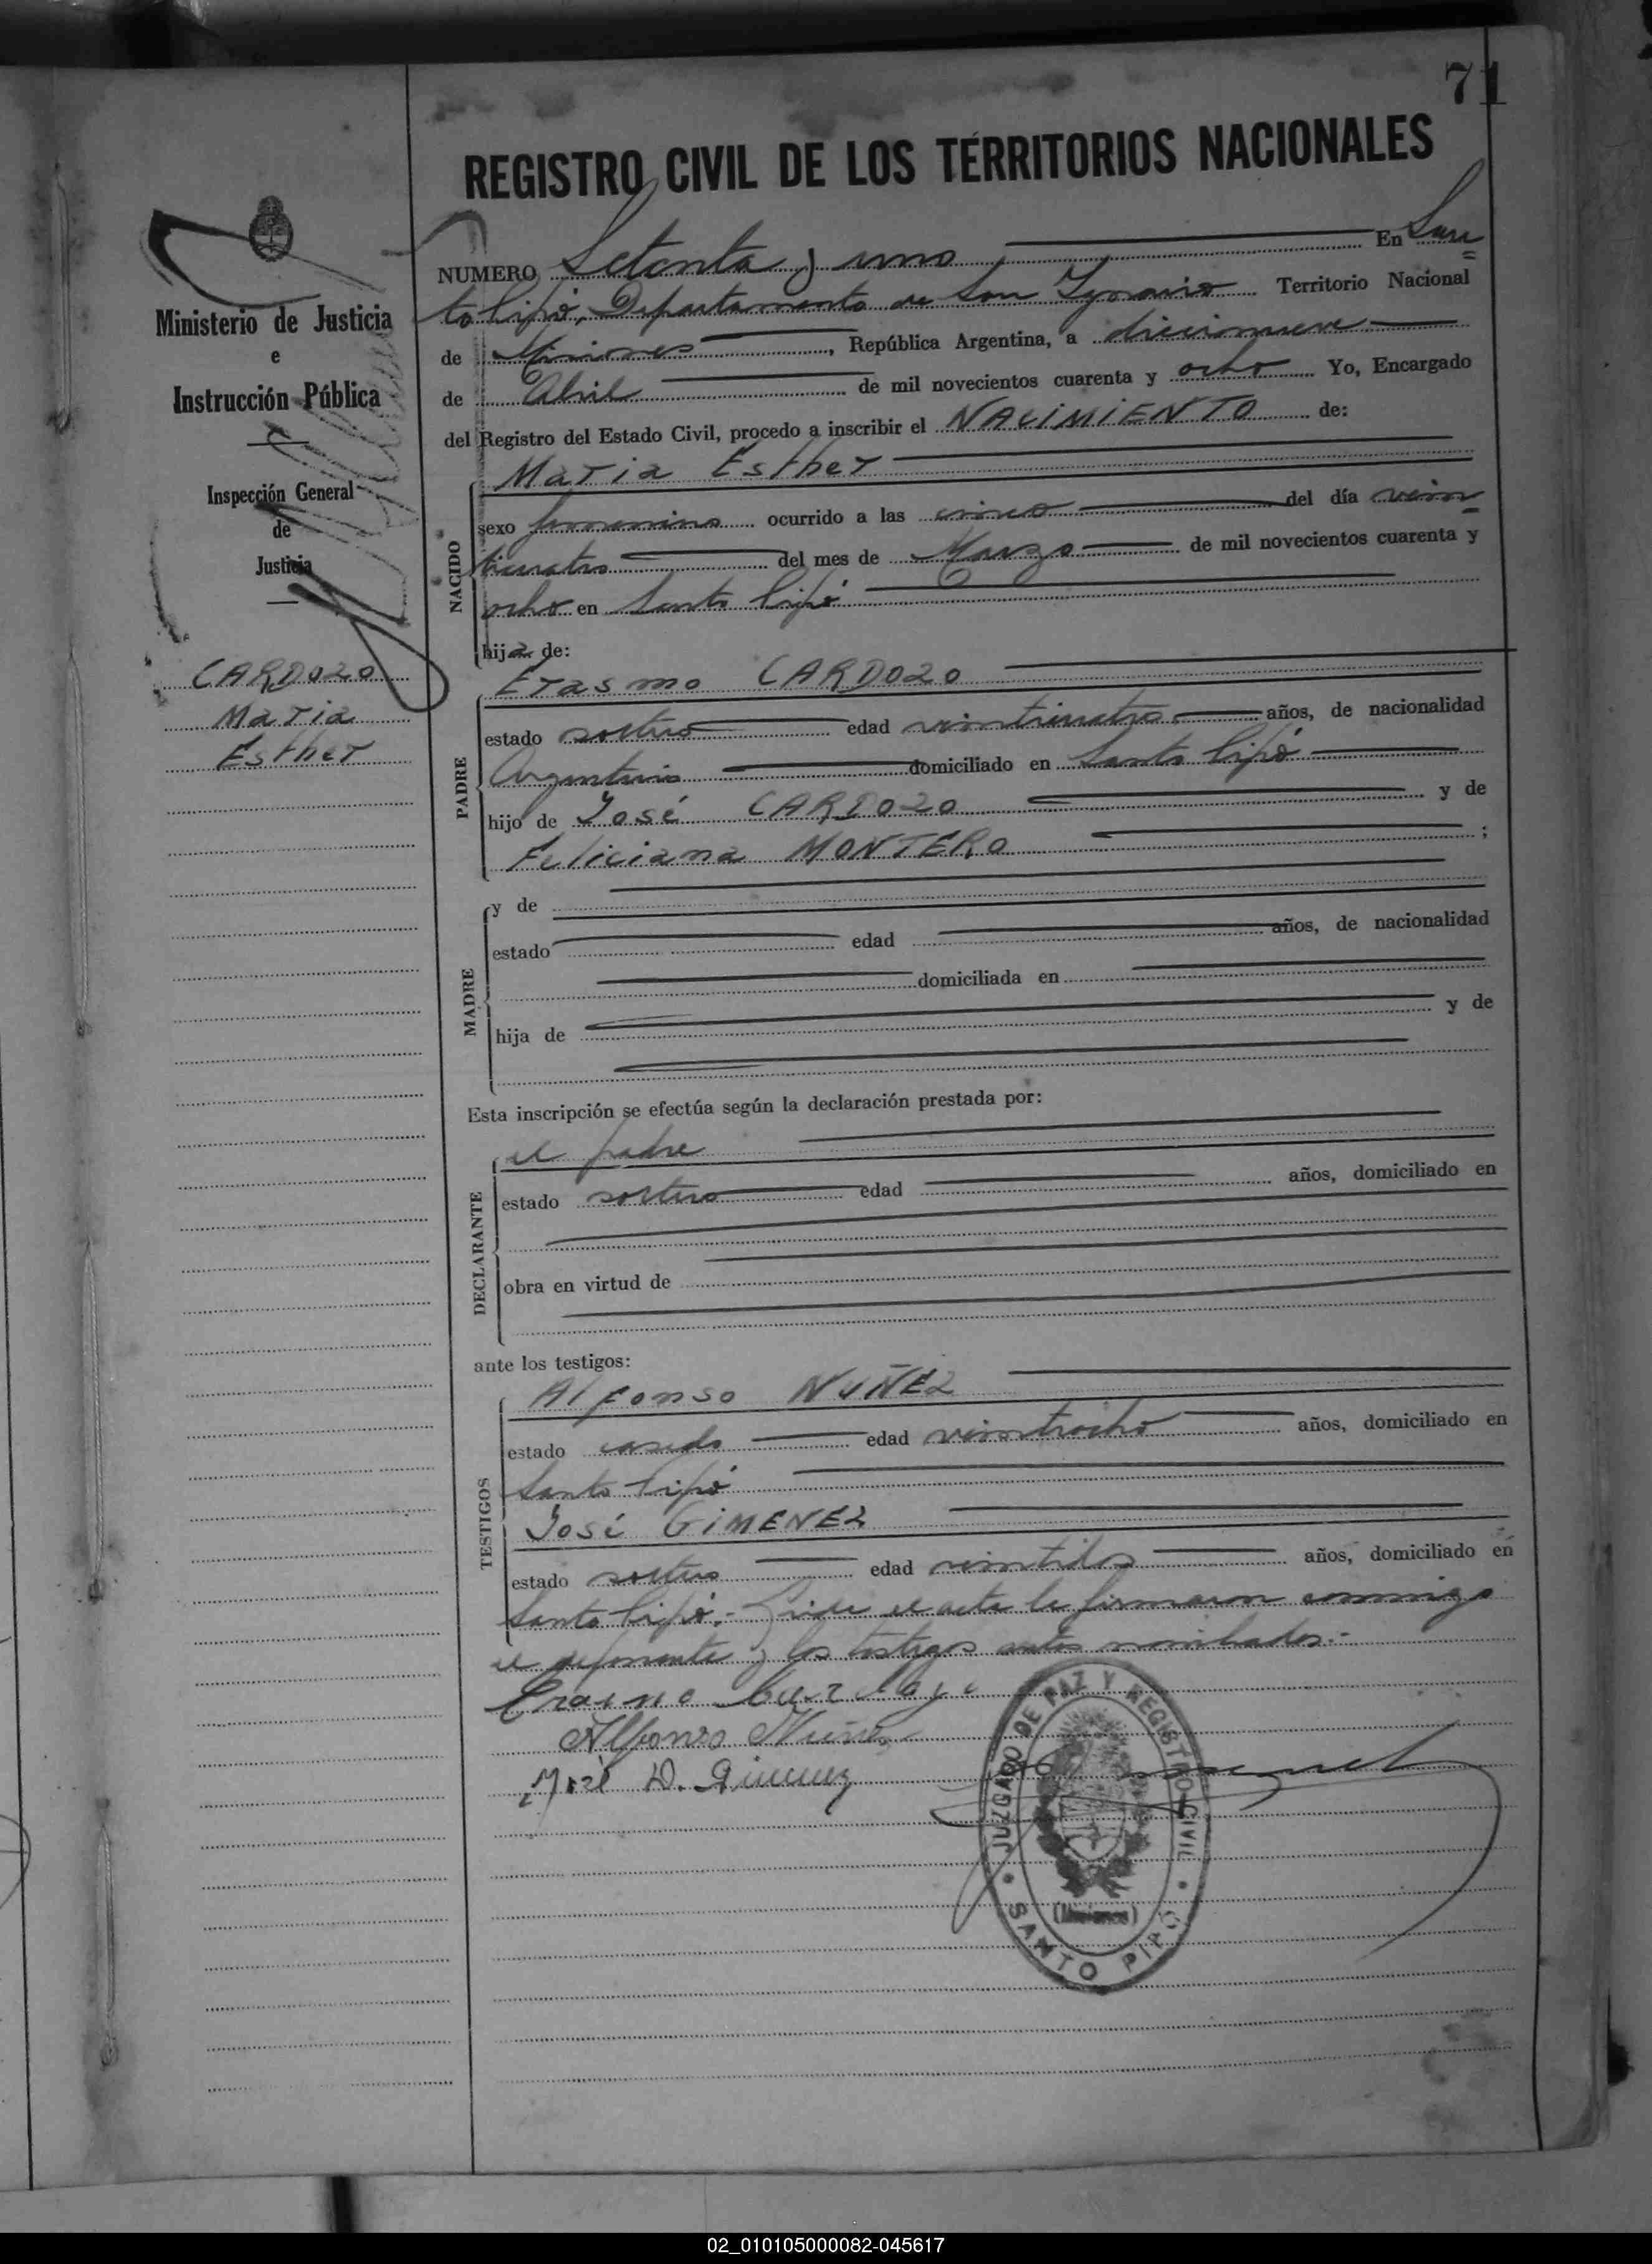 71
REGISTRO CIVIL DE LOS TERRITORIOS NACIONALES
Ministerio de Justicia
e
Instrucción Pública
Inspección General
de
Justicia
CARDOZO
Maria
Esther
NUMERO Setenta y uno En San
to Pipó, Departamento de San Ignacio Territorio Nacional
de Misiones, República Argentina, a diecinueve
de Abril de mil novecientos cuarenta y ocho Yo, Encargado
del Registro del Estado Civil, procedo a inscribir el NACIMIENTO de:
NACIDO
Maria Esther
sexo femenino ocurrido a las cinco del día vein
ticuatro del mes de Marzo de mil novecientos cuarenta y
ocho en Santo Pipó
hija de:
PADRE
Erasmo CARDOZO
estado soltero edad veinticuatro años, de nacionalidad
Argentino domiciliado en Santo Pipó
hijo de José CARDOZO y de
Feliciana MONTERO ;
MADRE
y de
estado edad años, de nacionalidad
domiciliada en
hija de y de
Esta inscripción se efectúa según la declaración prestada por:
DECLARANTE
el padre
estado soltero edad años, domiciliado en
obra en virtud de
ante los testigos:
TESTIGOS
Alfonso NUÑEZ
estado casado edad veintiocho años, domiciliado en
Santo Pipó
José GIMENEZ
estado soltero edad veintidos años, domiciliado en
Santo Pipó.- Leida el acta la firmaron conmigo
el deponente y los testigos antes nombrados.-
Erasmo Cardozo
Alfonso Nuñez
José D. Gimenez
JUZGADO DE PAZ Y REGISTRO CIVIL
(Misiones)
SANTO PIPÓ
02_010105000082-045617